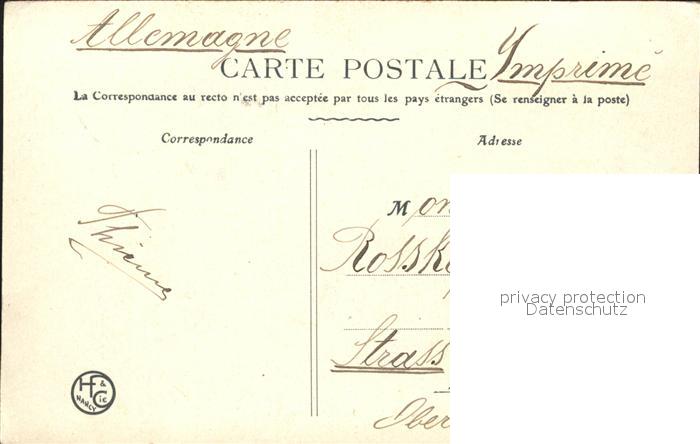 Allemagne
Imprimé
CARTE POSTALE
La Correspondance au recto n'est pas acceptée par tous les pays étrangers (Se renseigner à la poste)
Correspondance
Adresse
Thième
Mon
Rossk
Strass
Ober
privacy protection
Datenschutz
H & Cie
NANCY